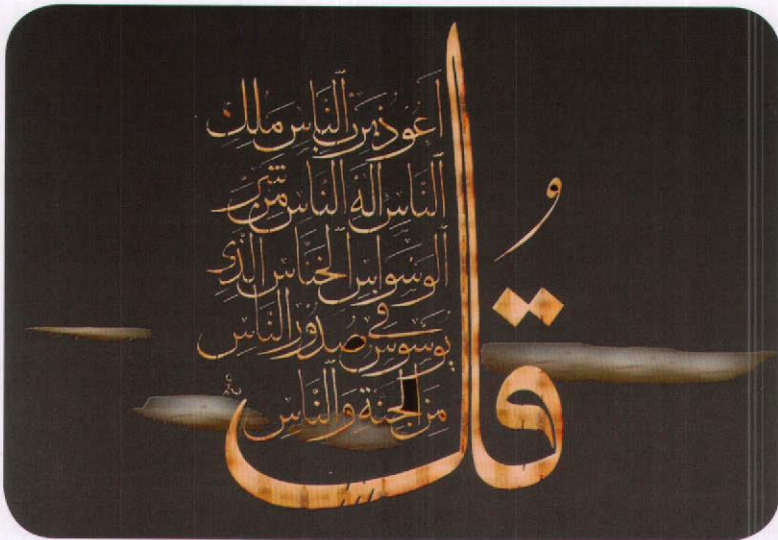 قُل
اَعُوذُ بِرَبِّ ٱلنَّاسِ مَلِكِ
ٱلنَّاسِ اِلٰهِ ٱلنَّاسِ مِن شَرِّ
ٱلوَسْوَاسِ ٱلخَنَّاسِ ٱلَّذِي
يُوَسْوِسُ فِي صُدُورِ ٱلنَّاسِ
مِنَ ٱلجِنَّةِ وَٱلنَّاسِ